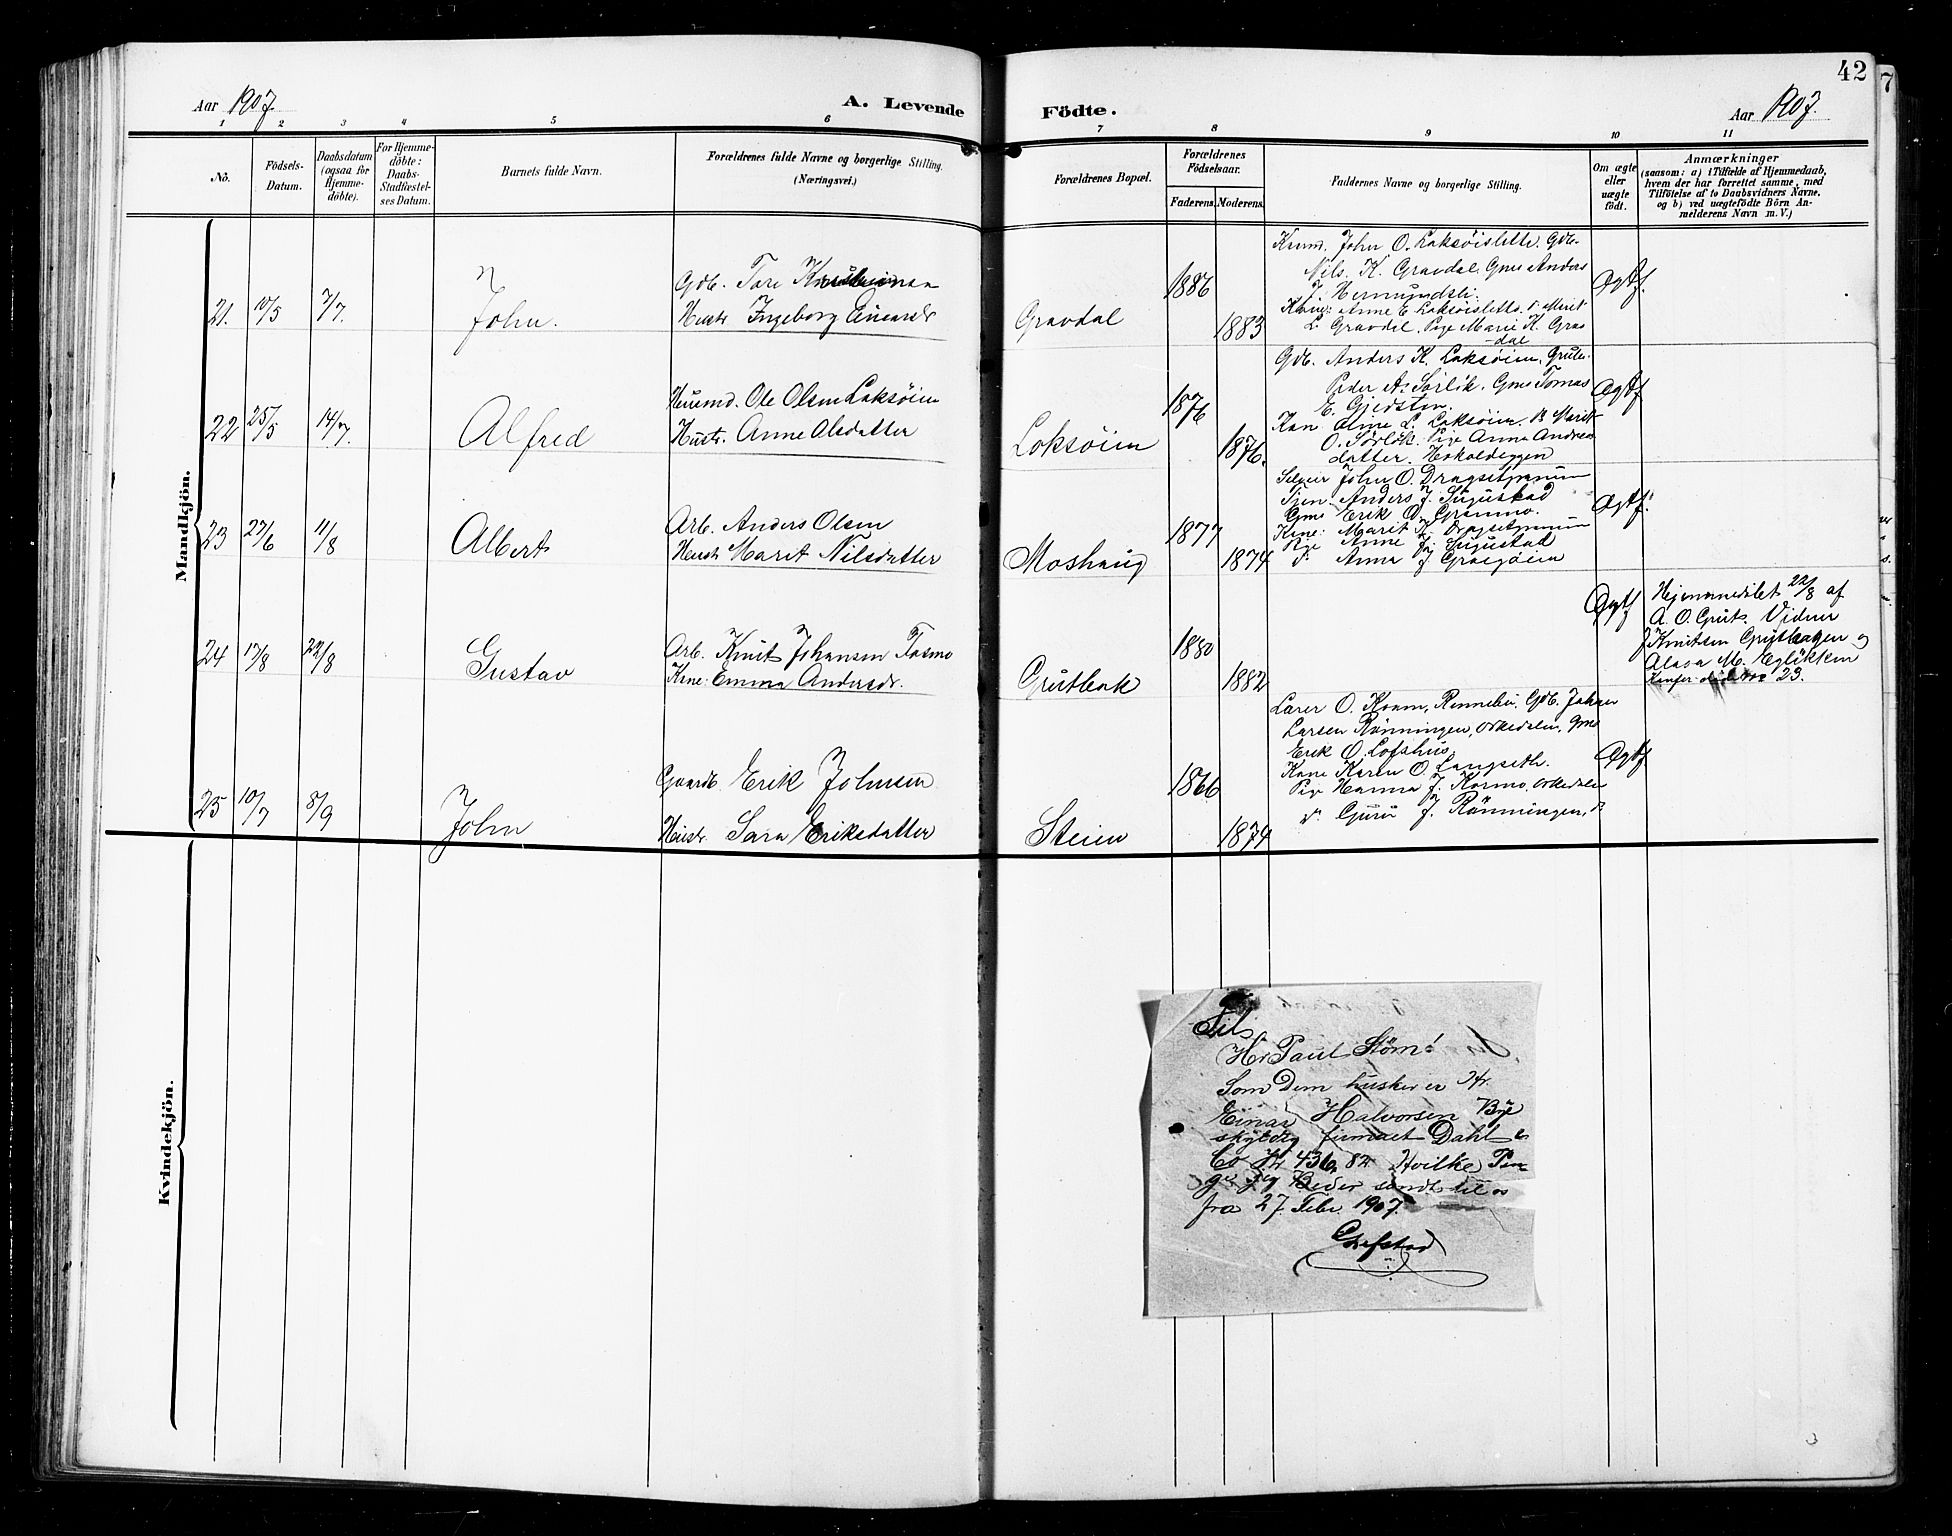 42
7
Aar 1907.
A. Levende
Födte.
Aar 1907.
1 2 3 4 5 6 7 8 9 10 11
Nô.
Födsels-
Datum.
Daabsdatum
(ogsaa for
Hjemme-
döbte).
For Hjemme-
döbte:
Daabs-
Stadfæstel-
ses Datum.
Barnets fulde Navn.
Forældrenes fulde Navne og borgerlige Stilling.
(Næringsvei.)
Forældrenes Bopæl.
Forældrenes
Födselsaar.
Faderens.
Moderens.
Faddernes Navne og borgerlige Stilling.
Om ægte
eller
uægte
födt.
Anmærkninger
(saasom: a) i Tilfælde af Hjemmedaab,
hvem der har forrettet samme, med
Tilföielse af to Daabsvidners Navne.
og b) ved uægtefödte Börn An-
melderens Navn m. V.)
Mandkjön.
21. 10/5 7/7. John.
Gdb. Tore
Hustr Ingeborg Einarsdr
Gravdal
1886
1883
John O. Loksöisletta. Gdb.
Nils. K. Gravdal. Gms Anders
J. Hermundsli.
Kone: Anne E Loksöisletta. Marit
L. Gravdal. Pige Marie K. Grav
-dal
Ægtf.
22 25/5 14/7. Alfred
Husmd. Ole Olsen Loksöien
Hustr. Anne Olsdatter
Loksöien
1876
1876.
Gdb. Anders K. Loksöien,
Peder A. Sörlök. Gms Tomas
E. Gjedsten.
L. Loksöien. Marit
O. Sörlök. Pige Anna Andrea
datter. Haskoldeggen
Ægtf
23 27/6 11/8 Albert
Arb. Anders Olsen
Hustr Marit Nilsdatter
Moshaug
1877
1874
John O. Dragsetmoen
Tjen. Anders J. Jugustad
Gms Erik O. Grönmo.
Kone: Marit K. Dragsetmoen
Pige Anne J. Jugustad
Anna J. Gravöien
Ægtf.
24 17/8 22/8 Gustav
Arb. Knut Johansen Tosmo
Kone: Emma Andersdr.
Grutbak
1880
1882
Ægtf
Hjemmedöbt 22/8 af
A. O. Gruts. Vidner
J Knutsen Grutbagen og
M. Eglökken
23.
25 10/7 8/9 John
Gaardb. Erik Johnsen
Hustr. Sara Eriksdatter
Steien
1866
1874
Lærer O. Kvam, Rennebu. Gdb. Johan
Larsen Rönningen, Orkedalen, Gms
Erik O. Lofshus.
Kone Karen O. Langseth.
Pige Hanna J. Kormo, Orkedalen
Guru J. Rönningen,
Ægtf
Kvindekjön.
Til
Hr Paul Stöm!
Som Dem husker er Hr.
Einar Halvorsen Bye
skyldig firmaet Dahl &
Co Kr 436,82 Hvilke Pen-
ge jeg Beder sendt til os
fra 27 Febr. 1907.
Grefstad